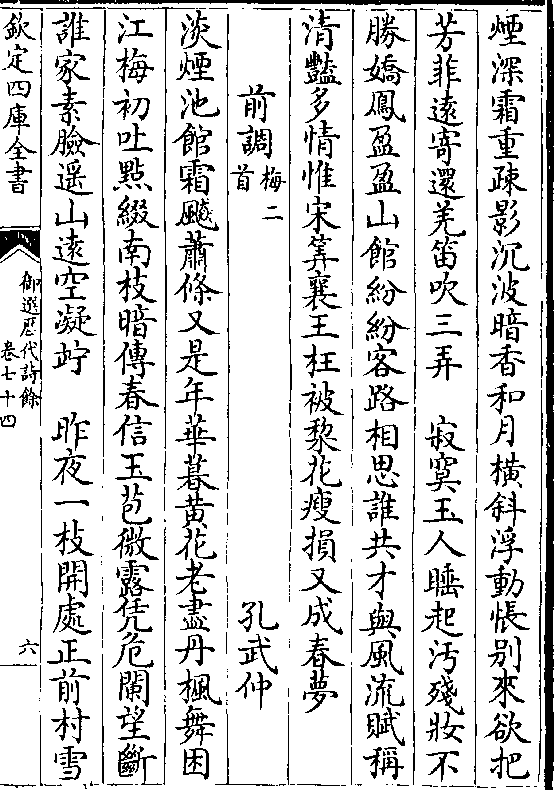 煙深霜重疎影沉波暗香和月横斜浮動悵别來欲把
芳菲逺寄還羌笛吹三弄　寂寞玉人睡起汚殘妝不
勝嬌鳳盈盈山館紛紛客路相思誰共才與風流賦稱
清豔多情惟宋筭襄王枉被黎花瘦損又成春夢
前調梅二首　孔武仲
淡煙池館霜飈蕭條又是年華暮黄花老盡丹楓舞困
江梅初吐點綴南枝暗傳春信玉苞微露凭危闌望斷
誰家素臉遥山逺空凝竚　昨夜一枝開處正前村雪
欽定四庫全書
御選歴代詩餘
卷七十四
六